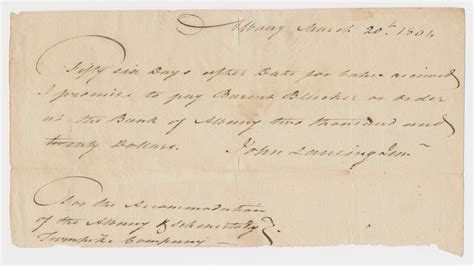 Albany March 20th 1804
Fifty six Days after Date for value received
I promise to pay Barent Bleecker or order
at the Bank of Albany two thousand and
twenty Dollars. John Lansing Junr
For the Accommodation
of the Albany & Schenectady
Turnpike Company